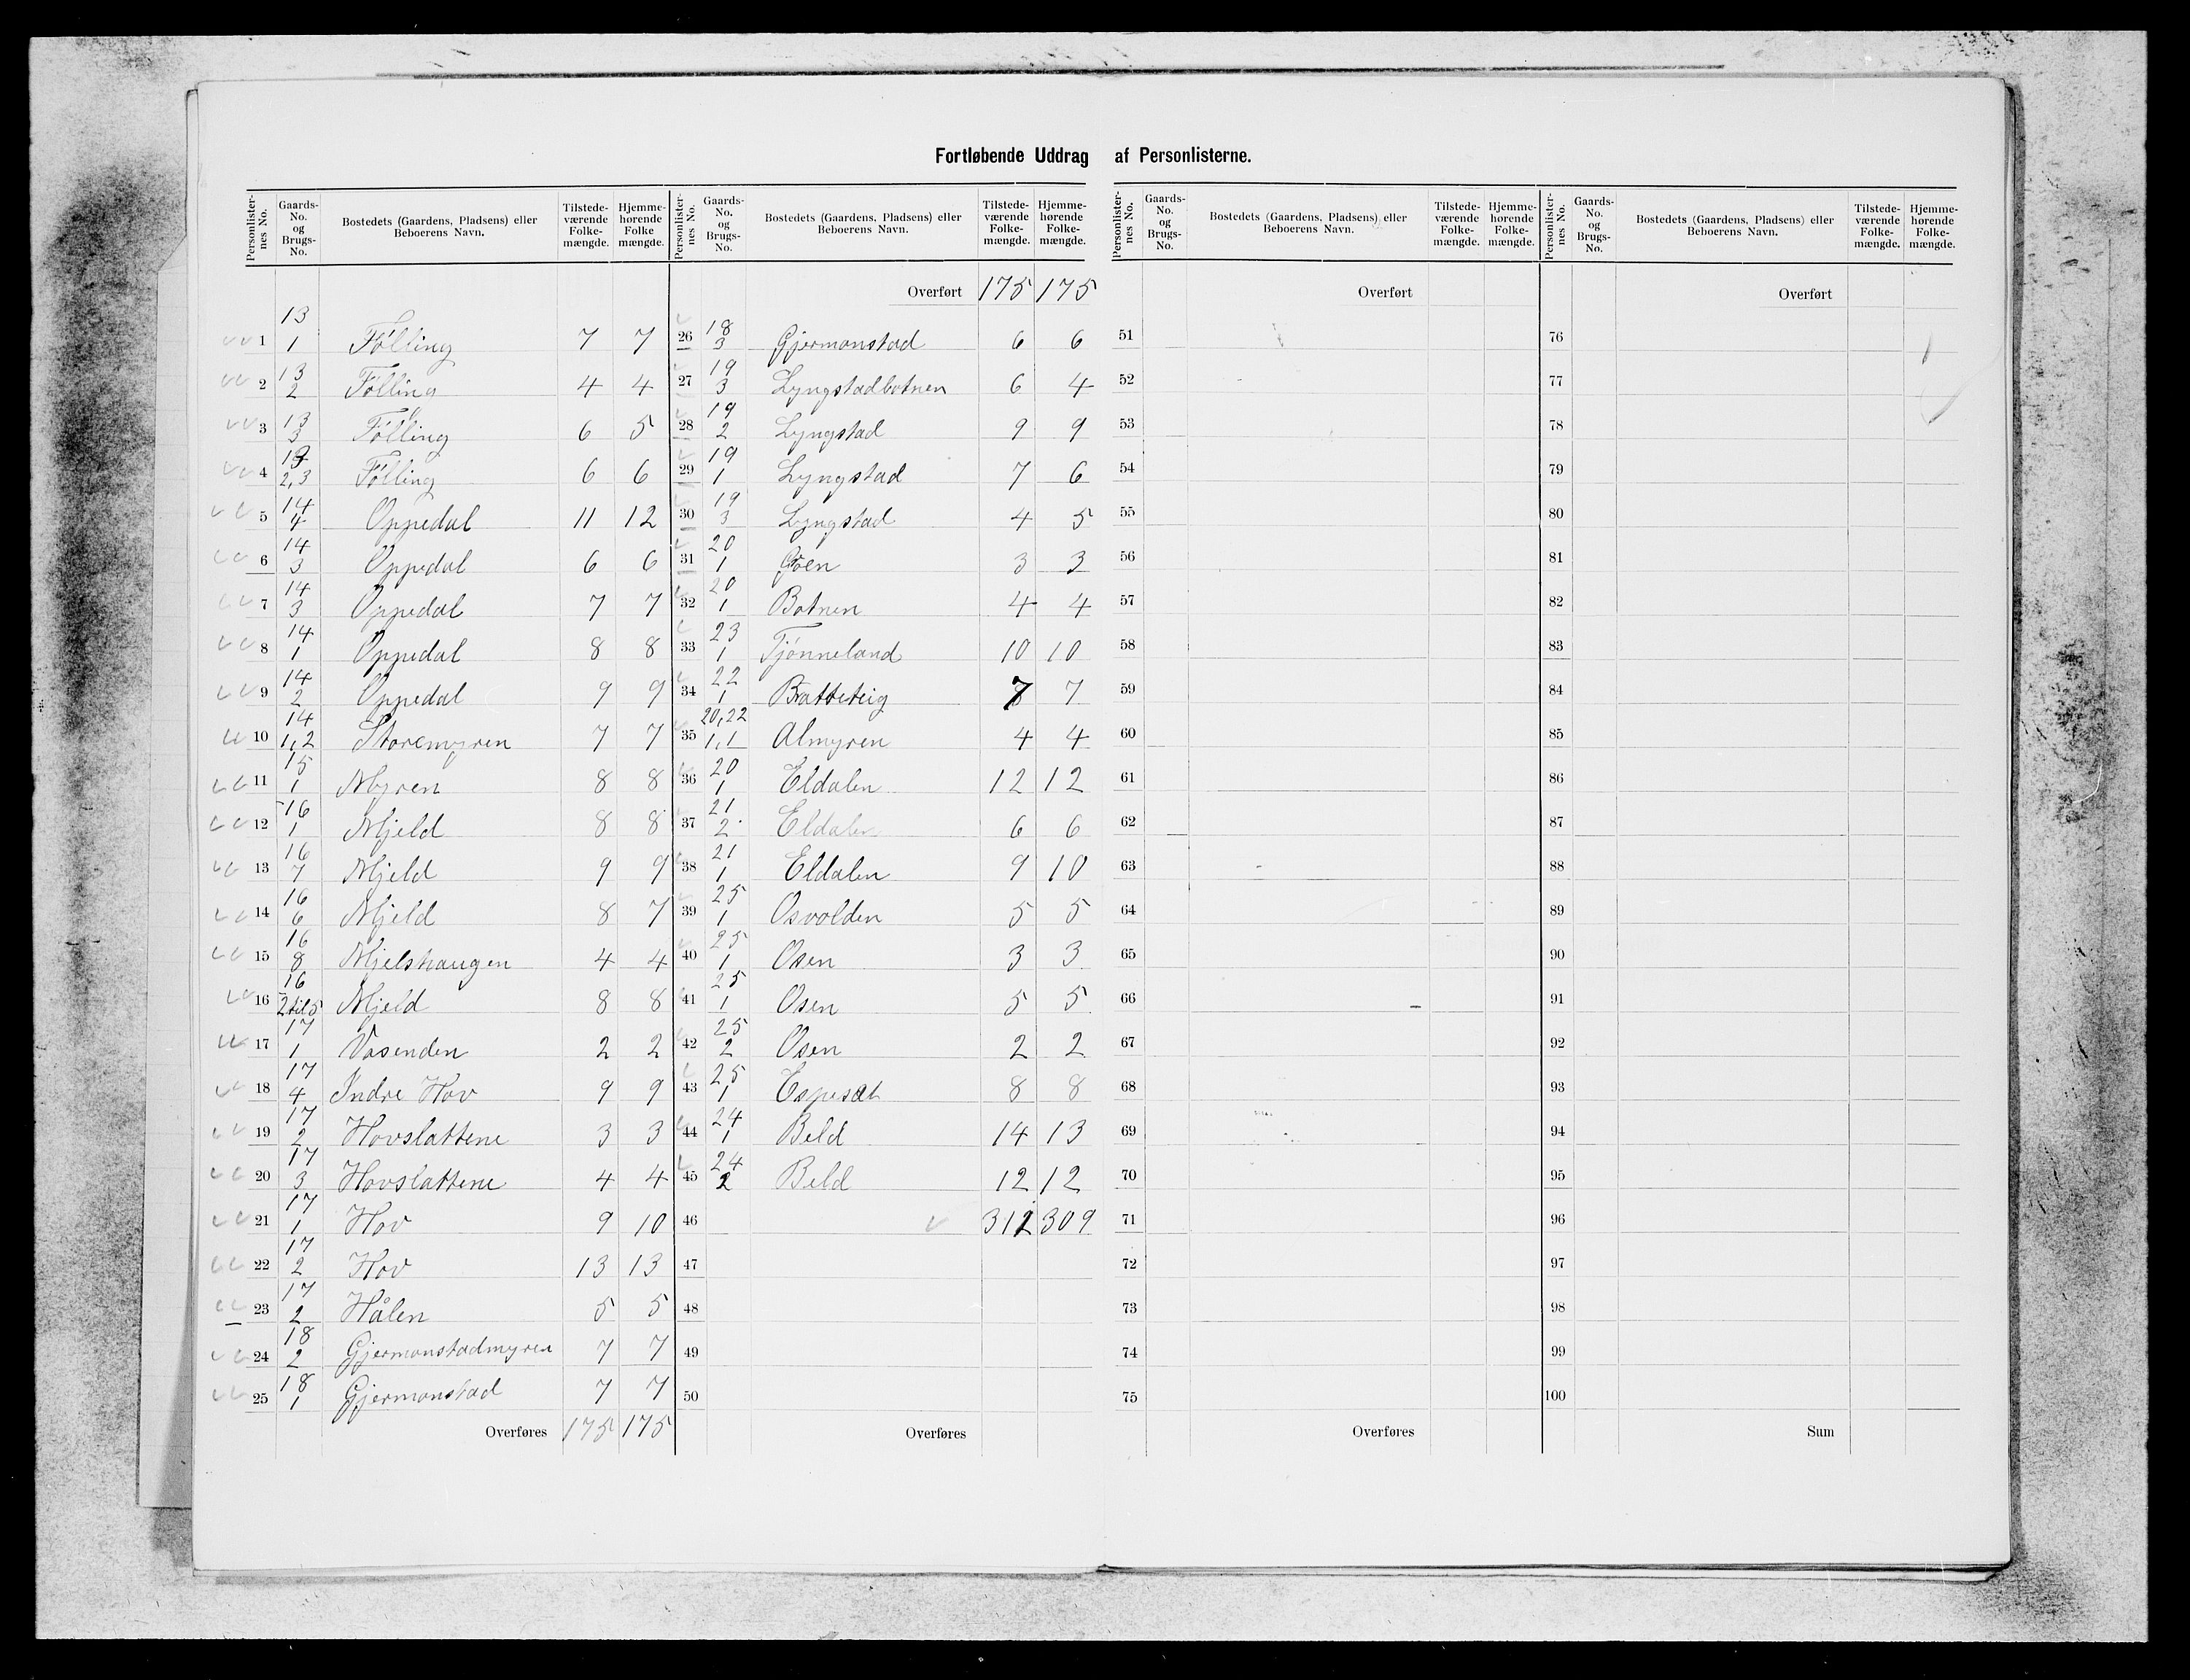 Fortløbende Uddrag af Personlisterne.
Personlisternes No. Gaards-No. og Brugs-No. Bostedets (Gaardens, Pladsens) eller Beboerens Navn. Tilstedeværende Folkemængde. Hjemmehørende Folkemængde.
1 13 1 Tölling 7 7
2 13 2 Tölling 4 4
3 13 3 Tölling 6 5
4 13 2,3 Tölling 6 6
5 14 4 Oppedal 11 12
6 14 3 Oppedal 6 6
7 14 3 Oppedal 7 7
8 14 1 Oppedal 8 8
9 14 2 Oppedal 9 9
10 14 1,2 Storemyren 7 7
11 15 1 Myren 8 8
12 16 1 Mjeld 8 8
13 16 7 Mjeld 9 9
14 16 6 Mjeld 8 7
15 16 8 Mjelshaugen 4 4
16 16 2til5 Mjeld 8 8
17 17 1 Vasenden 2 2
18 17 4 Indre Hov 9 9
19 17 2 Hovslattene 3 3
20 17 3 Hovslattene 4 4
21 17 1 Hov 9 10
22 17 2 Hov 13 13
23 17 2 Hålen 5 5
24 18 2 Gjermonstadmyren 7 7
25 18 1 Gjermonstad 7 7
Overføres 175 175
Personlisternes No. Gaards-No. og Brugs-No. Bostedets (Gaardens, Pladsens) eller Beboerens Navn. Tilstedeværende Folkemængde. Hjemmehørende Folkemængde.
Overført 175 175
26 18 3 Gjermonstad 6 6
27 19 3 Lyngstadbotnen 6 4
28 19 2 Lyngstad 9 9
29 19 1 Lyngstad 7 6
30 19 3 Lyngstad 4 5
31 20 1 3 3
32 20 1 Botnen 4 4
33 23 1 Tjönneland 10 10
34 22 1 Bratteteig 7 7
35 20,22 1,1 Almyren 4 4
36 20 1 Eldalen 12 12
37 21 2 Eldalen 6 6
38 21 1 Eldalen 9 10
39 25 1 Osvolden 5 5
40 25 1 Osen 3 3
41 25 1 Osen 5 5
42 25 2 Osen 2 2
43 25 1 Espesæt 8 8
44 24 1 Beld 14 13
45 24 2 Beld 12 12
46 312 309
47
48
49
50
Overføres
Personlisternes No. Gaards-No. og Brugs-No. Bostedets (Gaardens, Pladsens) eller Beboerens Navn. Tilstedeværende Folkemængde. Hjemmehørende Folkemængde.
Overført
51
52
53
54
55
56
57
58
59
60
61
62
63
64
65
66
67
68
69
70
71
72
73
74
75
Overføres
Personlisternes No. Gaards-No. og Brugs-No. Bostedets (Gaardens, Pladsens) eller Beboerens Navn. Tilstedeværende Folkemængde. Hjemmehørende Folkemængde.
Overført
76
77
78
79
80
81
82
83
84
85
86
87
88
89
90
91
92
93
94
95
96
97
98
99
100
Sum